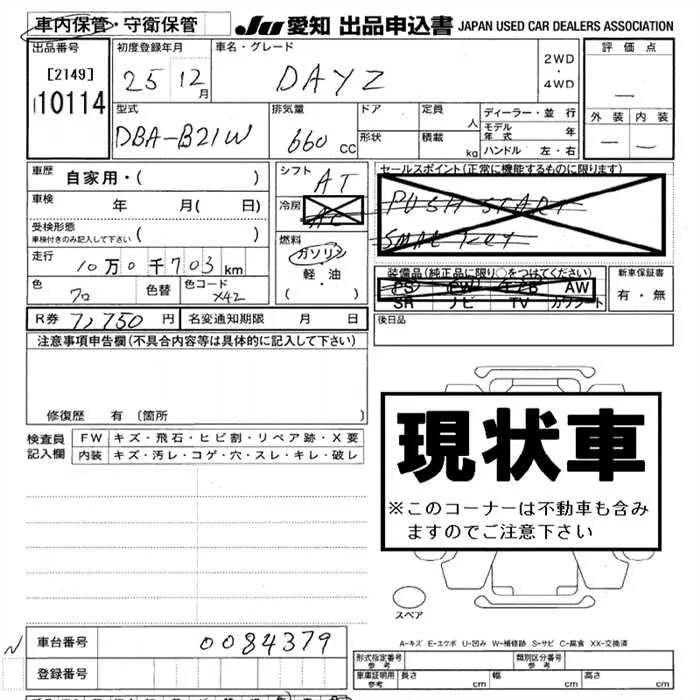 車内保管・守衛保管
JU 愛知 出品申込書 JAPAN USED CAR DEALERS ASSOCIATION
出品番号 初度登録年月 車名・グレード 評価点
[2149] 25 12月 DAYZ 2WD・4WD
10114
型式 排気量 ドア 定員 ディーラー・並行 外装 内装
DBA-B21W 660 CC 人 モデル年式 年
形状 積載 kg ハンドル 左・右
車歴 自家用・( ) シフト AT セールスポイント(正常に機能するものに限ります)
車検 年 月( 日) 冷房 AC PUSH START
受検形態 車検付きのみ記入して下さい ( ) SMAL KEY
走行 10万0千703km 燃料 ガソリン 軽・油 ( )
装備品(純正品に限り○をつけてください) 新車保証書
PS PW エアB AW 有・無
SR ナビ TV カワシート
色 色替 色コード X42
後日品
R券 7,750円 名変通知期限 月 日
注意事項申告欄(不具合内容等は具体的に記入して下さい)
修復歴 有 〔箇所 〕
検査員記入欄 FW キズ・飛石・ヒビ割・リペア跡・X要
内装 キズ・汚レ・コゲ・穴・スレ・キレ・破レ
現状車
※このコーナーは不動車も含み
ますのでご注意下さい
スペア
A-キズ E-エクボ U-凹み W-補修跡 S-サビ C-腐食 XX-交換済
N 車台番号 0084379
登録番号
形式指定番号 参考 類別区分番号 参考
車庫証明用 参考 長さ cm 幅 cm 高さ cm